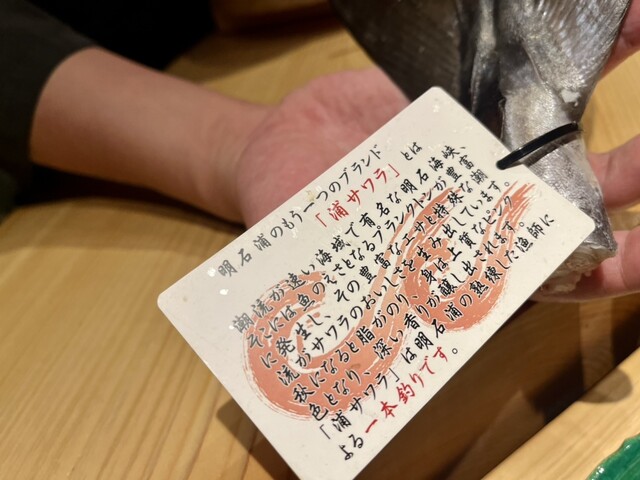 明石 浦のもう一つのブランド
「浦サワラ」とは
潮流が速い海域で有名な明石海峡、
そこには魚のえさとなるプランクトンが豊富
に発生し、その豊富なエサと特殊な潮
流がサワラのおいしさを生み出しています。
秋になると脂がのり、身は上質なピンク
色となり、深い香りが醸し出されます。
「浦サワラ」は明石浦の熟練した漁師に
よる一本釣りです。